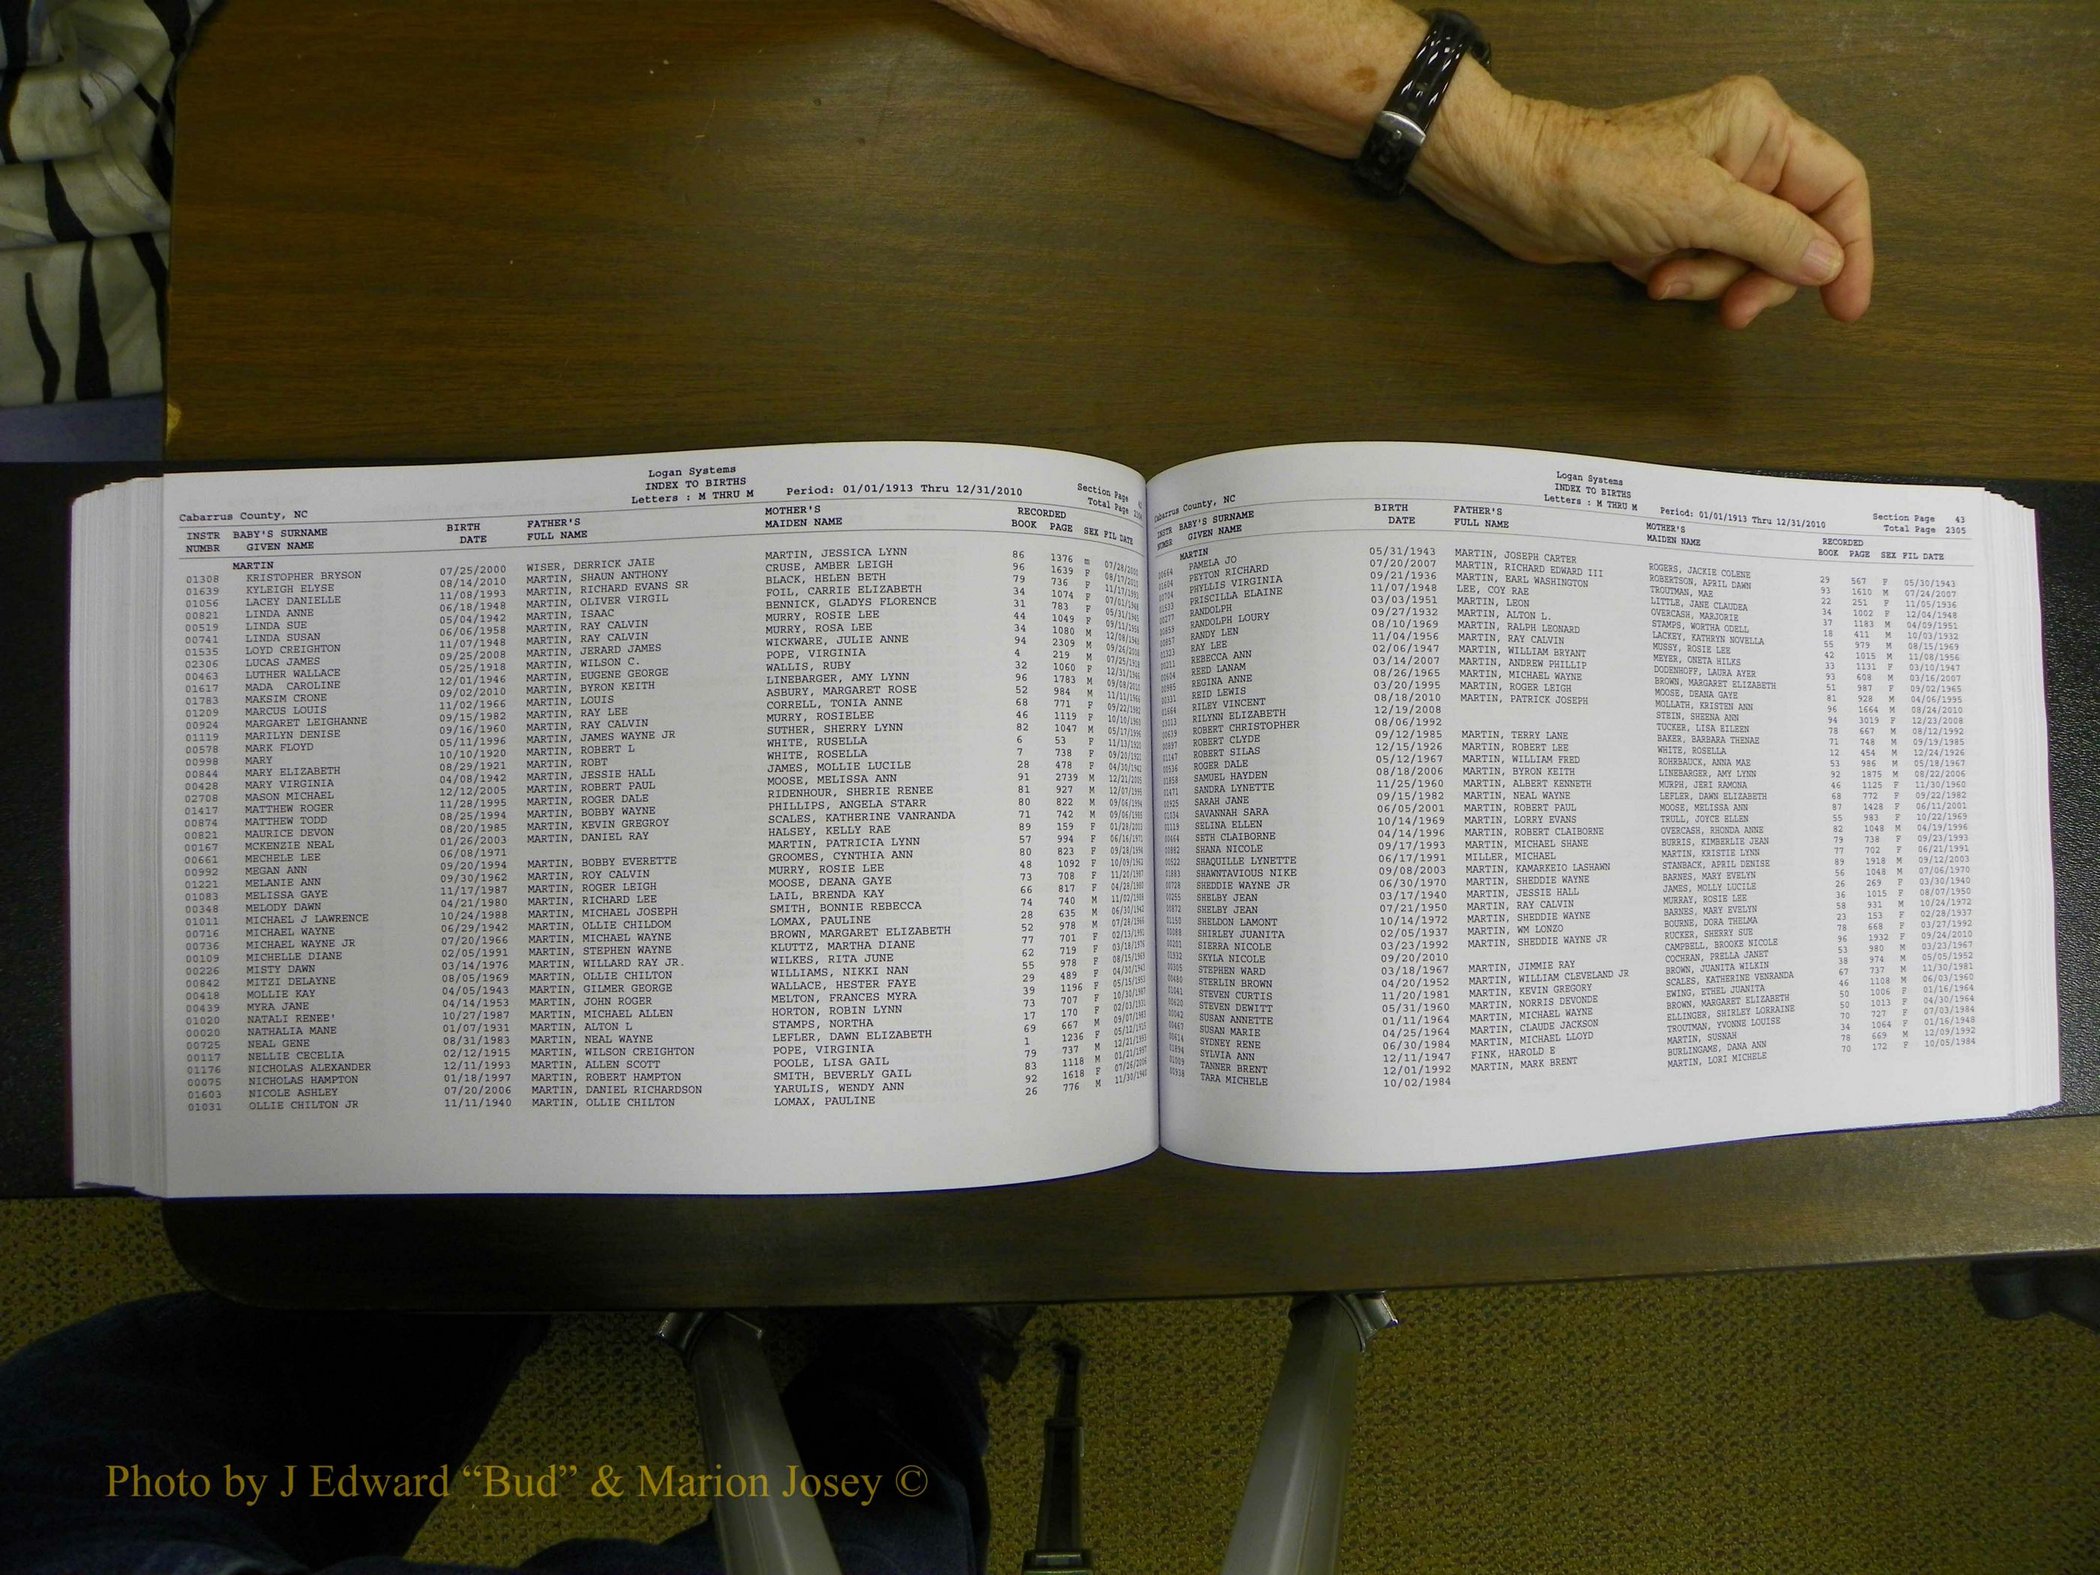 Logan Systems
INDEX TO BIRTHS
Letters : M THRU M
Period: 01/01/1913 Thru 12/31/2010
Section Page 42
Total Page 2304
Cabarrus County, NC
INSTR BABY'S SURNAME BIRTH FATHER'S MOTHER'S RECORDED
NUMBR GIVEN NAME DATE FULL NAME MAIDEN NAME BOOK PAGE SEX FIL DATE
MARTIN
01308 KRISTOPHER BRYSON 07/25/2000 WISER, DERRICK JAIE MARTIN, JESSICA LYNN 86 1376 m 07/28/2000
01639 KYLEIGH ELYSE 08/14/2010 MARTIN, SHAUN ANTHONY CRUSE, AMBER LEIGH 96 1639 F 08/17/2010
01056 LACEY DANIELLE 11/08/1993 MARTIN, RICHARD EVANS SR BLACK, HELEN BETH 79 736 F 11/17/1993
00821 LINDA ANNE 06/18/1948 MARTIN, OLIVER VIRGIL FOIL, CARRIE ELIZABETH 34 1074 F 07/01/1948
00519 LINDA SUE 05/04/1942 MARTIN, ISAAC BENNICK, GLADYS FLORENCE 31 783 F 05/31/1945
00741 LINDA SUSAN 06/06/1958 MARTIN, RAY CALVIN MURRY, ROSIE LEE 44 1049 F 09/11/1958
01535 LOYD CREIGHTON 11/07/1948 MARTIN, RAY CALVIN MURRY, ROSA LEE 34 1080 M 12/08/1948
02306 LUCAS JAMES 09/25/2008 MARTIN, JERARD JAMES WICKWARE, JULIE ANNE 94 2309 M 09/26/2008
00463 LUTHER WALLACE 05/25/1918 MARTIN, WILSON C. POPE, VIRGINIA 4 219 M 07/25/1918
01617 MADA CAROLINE 12/01/1946 MARTIN, EUGENE GEORGE WALLIS, RUBY 32 1060 F 12/31/1946
01783 MAKSIM CRONE 09/02/2010 MARTIN, BYRON KEITH LINEBARGER, AMY LYNN 96 1783 M 09/08/2010
01209 MARCUS LOUIS 11/02/1966 MARTIN, LOUIS ASBURY, MARGARET ROSE 52 984 M 11/11/1966
00924 MARGARET LEIGHANNE 09/15/1982 MARTIN, RAY LEE CORRELL, TONIA ANNE 68 771 F 09/22/1982
01119 MARILYN DENISE 09/16/1960 MARTIN, RAY CALVIN MURRY, ROSIELEE 46 1119 F 10/10/1960
00578 MARK FLOYD 05/11/1996 MARTIN, JAMES WAYNE JR SUTHER, SHERRY LYNN 82 1047 M 05/17/1996
00998 MARY 10/10/1920 MARTIN, ROBERT L WHITE, RUSELLA 6 53 F 11/13/1920
00844 MARY ELIZABETH 08/29/1921 MARTIN, ROBT WHITE, ROSELLA 7 738 F 09/20/1921
00428 MARY VIRGINIA 04/08/1942 MARTIN, JESSIE HALL JAMES, MOLLIE LUCILE 28 478 F 04/30/1942
02708 MASON MICHAEL 12/12/2005 MARTIN, ROBERT PAUL MOOSE, MELISSA ANN 91 2739 M 12/21/2005
01417 MATTHEW ROGER 11/28/1995 MARTIN, ROGER DALE RIDENHOUR, SHERIE RENEE 81 927 M 12/07/1995
00874 MATTHEW TODD 08/25/1994 MARTIN, BOBBY WAYNE PHILLIPS, ANGELA STARR 80 822 M 09/06/1994
00821 MAURICE DEVON 08/20/1985 MARTIN, KEVIN GREGROY SCALES, KATHERINE VANRANDA 71 742 M 09/06/1985
00167 MCKENZIE NEAL 01/26/2003 MARTIN, DANIEL RAY HALSEY, KELLY RAE 89 159 F 01/28/2003
00661 MECHELE LEE 06/08/1971 MARTIN, PATRICIA LYNN 57 994 F 06/16/1971
00992 MEGAN ANN 09/20/1994 MARTIN, BOBBY EVERETTE GROOMES, CYNTHIA ANN 80 823 F 09/28/1994
01221 MELANIE ANN 09/30/1962 MARTIN, ROY CALVIN MURRY, ROSIE LEE 48 1092 F 10/09/1962
01083 MELISSA GAYE 11/17/1987 MARTIN, ROGER LEIGH MOOSE, DEANA GAYE 73 708 F 11/20/1987
00348 MELODY DAWN 04/21/1980 MARTIN, RICHARD LEE LAIL, BRENDA KAY 66 817 F 04/28/1980
01011 MICHAEL J LAWRENCE 10/24/1988 MARTIN, MICHAEL JOSEPH SMITH, BONNIE REBECCA 74 740 M 11/02/1988
00716 MICHAEL WAYNE 06/29/1942 MARTIN, OLLIE CHILDOM LOMAX, PAULINE 28 635 M 06/30/1942
00736 MICHAEL WAYNE JR 07/20/1966 MARTIN, MICHAEL WAYNE BROWN, MARGARET ELIZABETH 52 978 M 07/28/1966
00109 MICHELLE DIANE 02/05/1991 MARTIN, STEPHEN WAYNE KLUTTZ, MARTHA DIANE 77 701 F 02/13/1991
00226 MISTY DAWN 03/14/1976 MARTIN, WILLARD RAY JR. WILKES, RITA JUNE 62 719 F 03/18/1976
00842 MITZI DELAYNE 08/05/1969 MARTIN, OLLIE CHILTON WILLIAMS, NIKKI NAN 55 978 F 08/15/1969
00418 MOLLIE KAY 04/05/1943 MARTIN, GILMER GEORGE WALLACE, HESTER FAYE 29 489 F 04/30/1943
00439 MYRA JANE 04/14/1953 MARTIN, JOHN ROGER MELTON, FRANCES MYRA 39 1196 F 05/15/1953
01020 NATALI RENEE' 10/27/1987 MARTIN, MICHAEL ALLEN HORTON, ROBIN LYNN 73 707 F 10/30/1987
00020 NATHALIA MANE 01/07/1931 MARTIN, ALTON L STAMPS, NORTHA 17 170 F 02/03/1931
00725 NEAL GENE 08/31/1983 MARTIN, NEAL WAYNE LEFLER, DAWN ELIZABETH 69 667 M 09/07/1983
00117 NELLIE CECELIA 02/12/1915 MARTIN, WILSON CREIGHTON POPE, VIRGINIA 1 1236 F 05/12/1915
01176 NICHOLAS ALEXANDER 12/11/1993 MARTIN, ALLEN SCOTT POOLE, LISA GAIL 79 737 M 12/21/1993
00075 NICHOLAS HAMPTON 01/18/1997 MARTIN, ROBERT HAMPTON SMITH, BEVERLY GAIL 83 1118 M 01/21/1997
01603 NICOLE ASHLEY 07/20/2006 MARTIN, DANIEL RICHARDSON YARULIS, WENDY ANN 92 1618 F 07/26/2006
01031 OLLIE CHILTON JR 11/11/1940 MARTIN, OLLIE CHILTON LOMAX, PAULINE 26 776 M 11/30/1940
Logan Systems
INDEX TO BIRTHS
Letters : M THRU M
Period: 01/01/1913 Thru 12/31/2010
Section Page 43
Total Page 2305
Cabarrus County, NC
INSTR BABY'S SURNAME BIRTH FATHER'S MOTHER'S RECORDED
NUMBR GIVEN NAME DATE FULL NAME MAIDEN NAME BOOK PAGE SEX FIL DATE
MARTIN
00664 PAMELA JO 05/31/1943 MARTIN, JOSEPH CARTER ROGERS, JACKIE COLENE 29 567 F 05/30/1943
01604 PEYTON RICHARD 07/20/2007 MARTIN, RICHARD EDWARD III ROBERTSON, APRIL DAWN 93 1610 M 07/24/2007
00704 PHYLLIS VIRGINIA 09/21/1936 MARTIN, EARL WASHINGTON TROUTMAN, MAE 22 251 F 11/05/1936
01533 PRISCILLA ELAINE 11/07/1948 LEE, COY RAE LITTLE, JANE CLAUDEA 34 1002 F 12/04/1948
00277 RANDOLPH 03/03/1951 MARTIN, LEON OVERCASH, MARJORIE 37 1183 M 04/09/1951
00859 RANDOLPH LOURY 09/27/1932 MARTIN, ALTON L. STAMPS, WORTHA ODELL 18 411 M 10/03/1932
00857 RANDY LEN 08/10/1969 MARTIN, RALPH LEONARD LACKEY, KATHRYN NOVELLA 55 979 M 08/15/1969
01323 RAY LEE 11/04/1956 MARTIN, RAY CALVIN MUSSY, ROSIE LEE 42 1015 M 11/08/1956
00211 REBECCA ANN 02/06/1947 MARTIN, WILLIAM BRYANT MEYER, ONETA HILKS 33 1131 F 03/10/1947
00604 REED LANAM 03/14/2007 MARTIN, ANDREW PHILLIP DODENHOFF, LAURA AYER 93 608 M 03/16/2007
00985 REGINA ANNE 08/26/1965 MARTIN, MICHAEL WAYNE BROWN, MARGARET ELIZABETH 51 987 F 09/02/1965
00331 REID LEWIS 03/20/1995 MARTIN, ROGER LEIGH MOOSE, DEANA GAYE 81 928 M 04/06/1995
01664 RILEY VINCENT 08/18/2010 MARTIN, PATRICK JOSEPH MOLLATH, KRISTEN ANN 96 1664 M 08/24/2010
03013 RILYNN ELIZABETH 12/19/2008 STEIN, SHEENA ANN 94 3019 F 12/23/2008
00639 ROBERT CHRISTOPHER 08/06/1992 TUCKER, LISA EILEEN 78 667 M 08/12/1992
00897 ROBERT CLYDE 09/12/1985 MARTIN, TERRY LANE BAKER, BARBARA THENAE 71 748 M 09/19/1985
01147 ROBERT SILAS 12/15/1926 MARTIN, ROBERT LEE WHITE, ROSELLA 12 454 M 12/24/1926
00536 ROGER DALE 05/12/1967 MARTIN, WILLIAM FRED ROHRBAUCK, ANNA MAE 53 986 M 05/18/1967
01858 SAMUEL HAYDEN 08/18/2006 MARTIN, BYRON KEITH LINEBARGER, AMY LYNN 92 1875 M 08/22/2006
01471 SANDRA LYNETTE 11/25/1960 MARTIN, ALBERT KENNETH MURPH, JERI RAMONA 46 1125 F 11/30/1960
00925 SARAH JANE 09/15/1982 MARTIN, NEAL WAYNE LEFLER, DAWN ELIZABETH 68 772 F 09/22/1982
01034 SAVANNAH SARA 06/05/2001 MARTIN, ROBERT PAUL MOOSE, MELISSA ANN 87 1428 F 06/11/2001
01119 SELINA ELLEN 10/14/1969 MARTIN, LORRY EVANS TRULL, JOYCE ELLEN 55 983 F 10/22/1969
00464 SETH CLAIBORNE 04/14/1996 MARTIN, ROBERT CLAIBORNE OVERCASH, RHONDA ANNE 82 1048 M 04/19/1996
00882 SHANA NICOLE 09/17/1993 MARTIN, MICHAEL SHANE BURRIS, KIMBERLIE JEAN 79 738 F 09/23/1993
00522 SHAQUILLE LYNETTE 06/17/1991 MILLER, MICHAEL MARTIN, KRISTIE LYNN 77 702 F 06/21/1991
01883 SHAWNTAVIOUS NIKE 09/08/2003 MARTIN, KAMARKEIO LASHAWN STANBACK, APRIL DENISE 89 1918 M 09/12/2003
00728 SHEDDIE WAYNE JR 06/30/1970 MARTIN, SHEDDIE WAYNE BARNES, MARY EVELYN 56 1048 M 07/06/1970
00255 SHELBY JEAN 03/17/1940 MARTIN, JESSIE HALL JAMES, MOLLY LUCILE 26 269 F 03/30/1940
00872 SHELBY JEAN 07/21/1950 MARTIN, RAY CALVIN MURRAY, ROSIE LEE 36 1015 F 08/07/1950
01150 SHELDON LAMONT 10/14/1972 MARTIN, SHEDDIE WAYNE BARNES, MARY EVELYN 58 931 M 10/24/1972
00088 SHIRLEY JUANITA 02/05/1937 MARTIN, WM LONZO BOURNE, DORA THELMA 23 153 F 02/28/1937
00201 SIERRA NICOLE 03/23/1992 MARTIN, SHEDDIE WAYNE JR RUCKER, SHERRY SUE 78 668 F 03/27/1992
01932 SKYLA NICOLE 09/20/2010 CAMPBELL, BROOKE NICOLE 96 1932 F 09/24/2010
00305 STEPHEN WARD 03/18/1967 MARTIN, JIMMIE RAY COCHRAN, PRELLA JANET 53 980 M 03/23/1967
00480 STERLIN BROWN 04/20/1952 MARTIN, WILLIAM CLEVELAND JR BROWN, JUANITA WILKIN 38 974 M 05/05/1952
01041 STEVEN CURTIS 11/20/1981 MARTIN, KEVIN GREGORY SCALES, KATHERINE VENRANDA 67 737 M 11/30/1981
00620 STEVEN DEWITT 05/31/1960 MARTIN, NORRIS DEVONDE EWING, ETHEL JUANITA 46 1108 M 06/03/1960
00042 SUSAN ANNETTE 01/11/1964 MARTIN, MICHAEL WAYNE BROWN, MARGARET ELIZABETH 50 1006 F 01/16/1964
00467 SUSAN MARIE 04/25/1964 MARTIN, CLAUDE JACKSON ELLINGER, SHIRLEY LORRAINE 50 1013 F 04/30/1964
00614 SYDNEY RENE 06/30/1984 MARTIN, MICHAEL LLOYD TROUTMAN, YVONNE LOUISE 70 727 F 07/03/1984
SYLVIA ANN 12/11/1947 FINK, HAROLD E MARTIN, SUSNAH 34 1064 F 01/16/1948
01009 TANNER BRENT 12/01/1992 MARTIN, MARK BRENT BURLINGAME, DANA ANN 78 669 M 12/09/1992
00938 TARA MICHELE 10/02/1984 MARTIN, LORI MICHELE 70 172 F 10/05/1984
Photo by J Edward “Bud” & Marion Josey ©